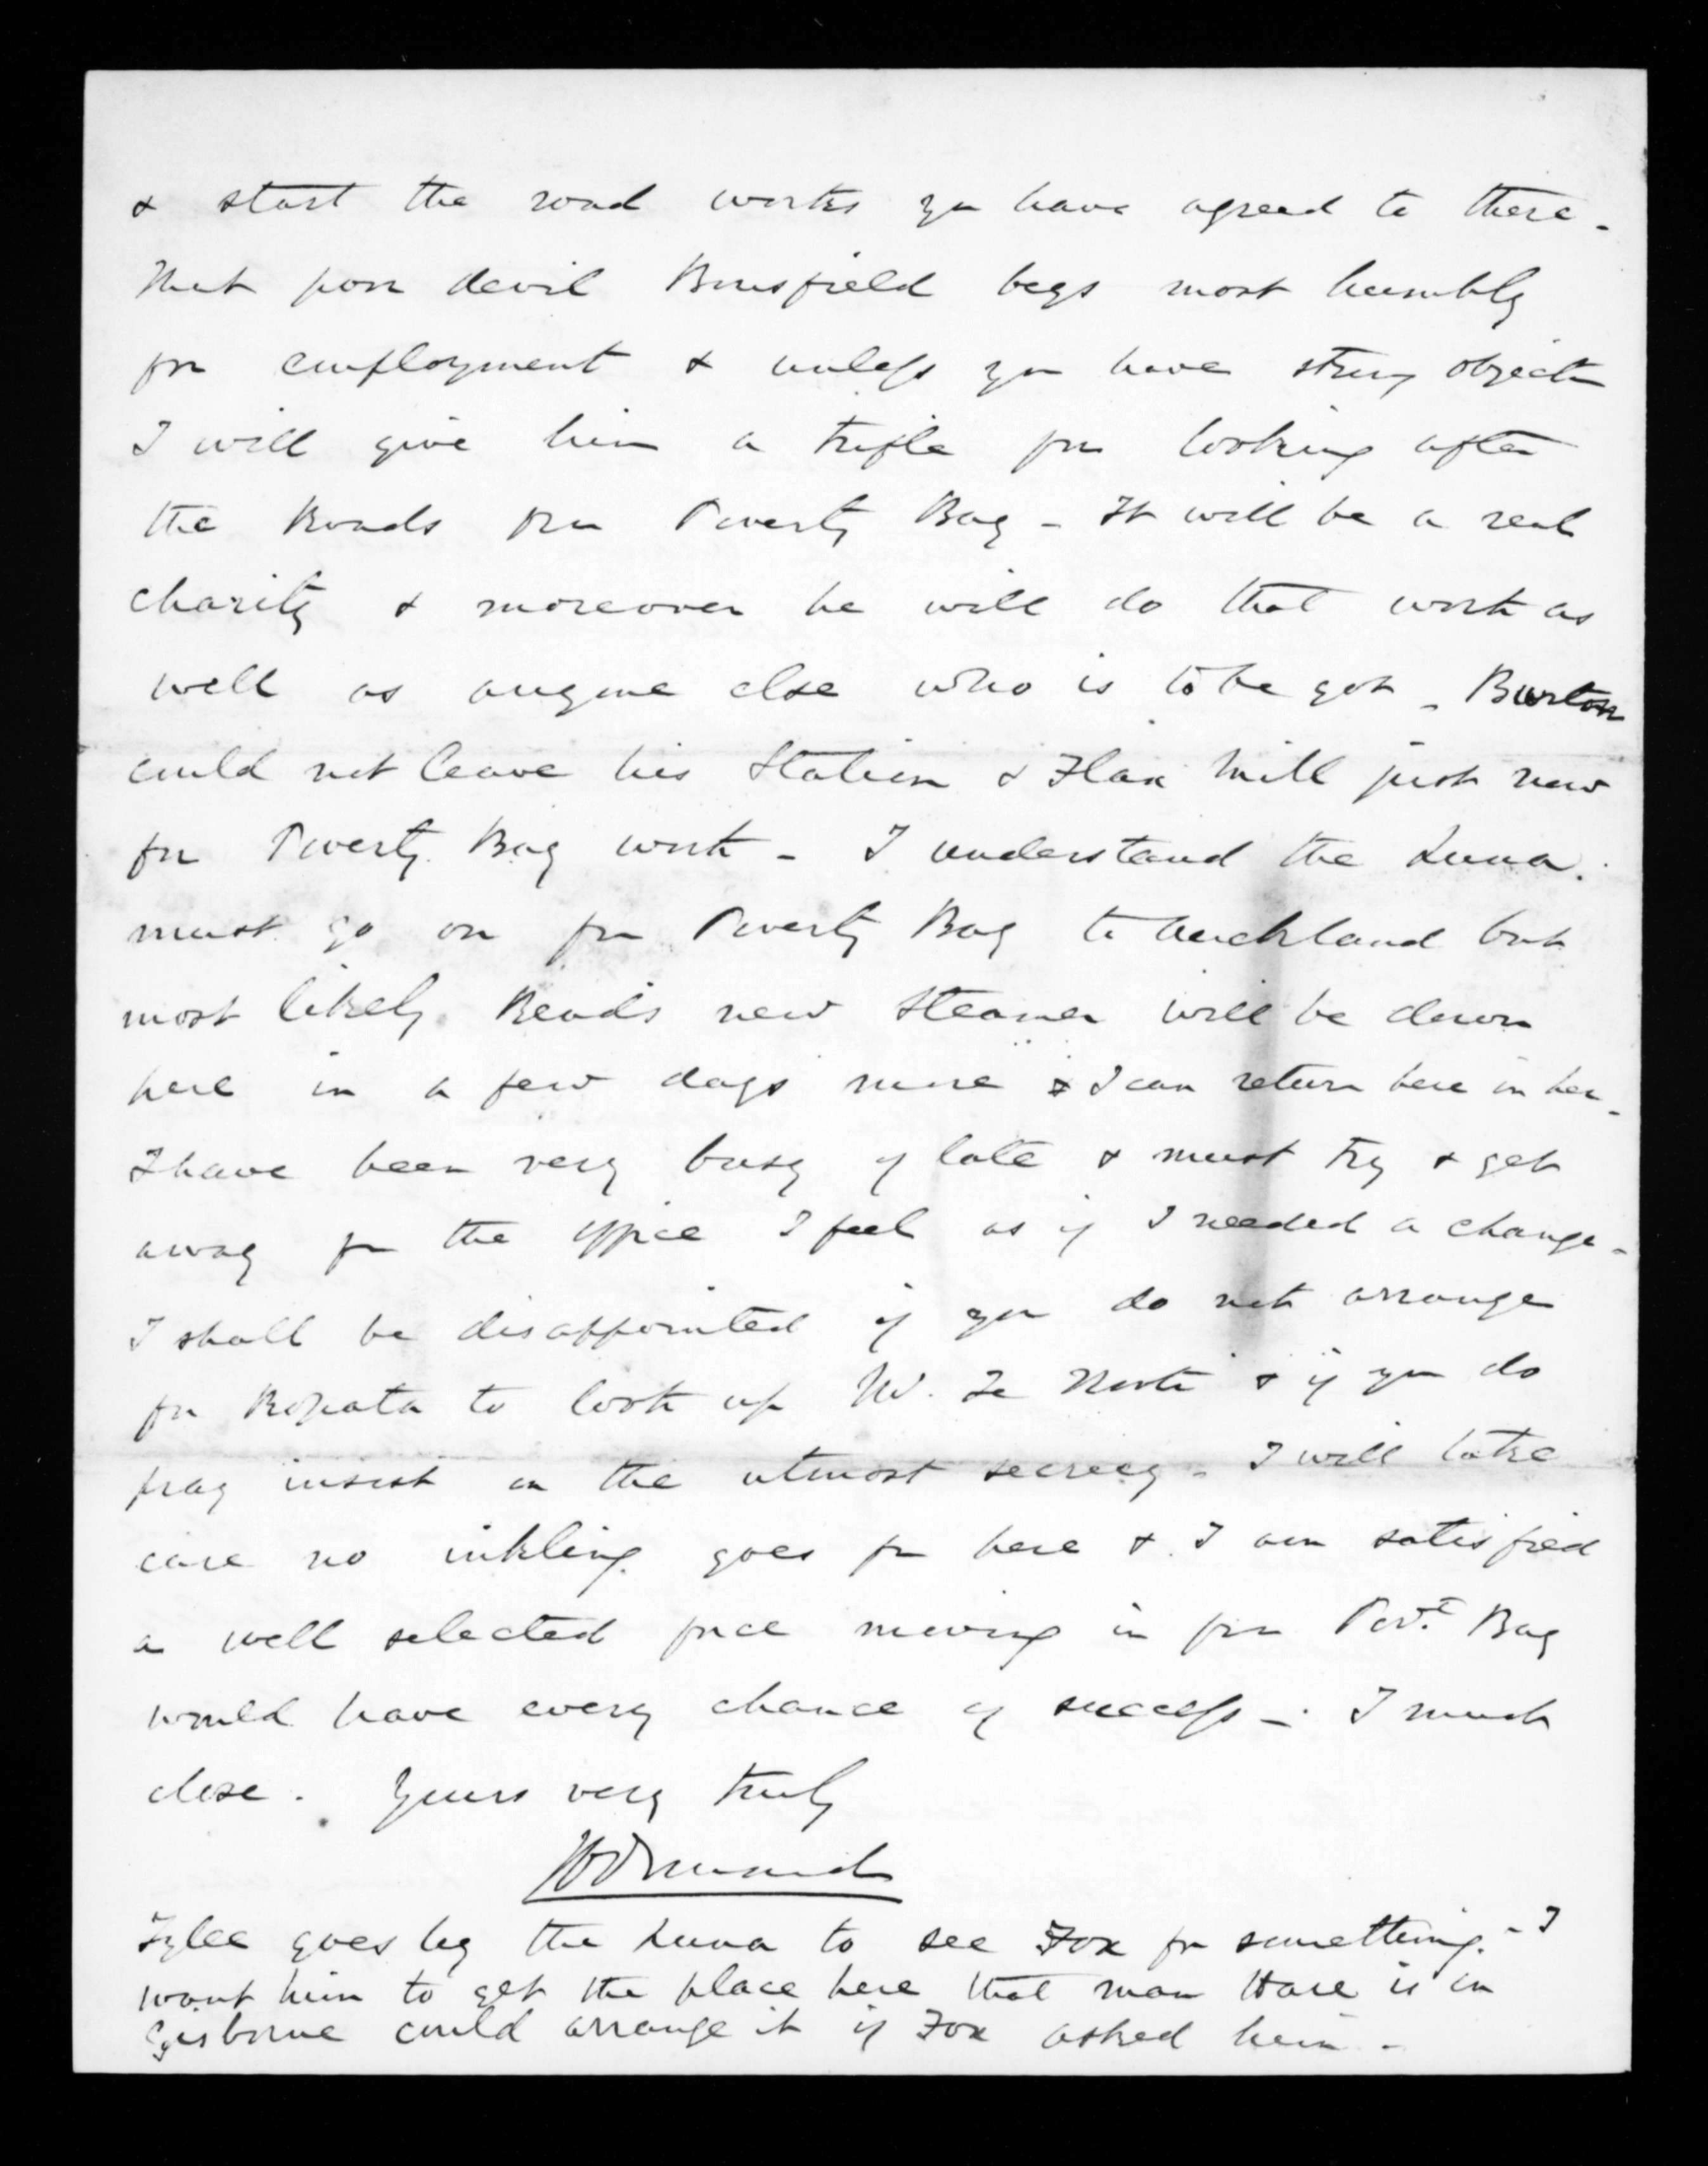 & start the road works you have agreed to there -
That poor devil Bousfield begs most humbly
for employment & unless you have strong objectn
I will give him a trifle for looking after
the Roads fm Poverty Bay - It will be a real
charity & moreover he will do that work as
well as anyone else who is to be got - Burton
could not leave his Station & Flax Mill just now
for Poverty Bay work - I understand the Luna
must go on fm Poverty Bay to Auckland but
most likely Reads new Steamer will be down
here in a few days more & I can return here in her -
I have been very busy of late & must try & get
away fm the office I feel as if I needed a change -
I shall be disappointed if you do not arrange
for Ropata to look up W. Te Kooti & if you do
pray insist on the utmost secrecy - I will take
care no inkling goes fm here & I am satisfied
a well selected force moving in fm Povt. Bay
would have every chance of success - I must
close. Yours very truly
JDOrmond
Tylee goes by the Luna to see Fox for something - I
want him to get the place here that man Hare is in
Gisborne could arrange it if Fox asked him -